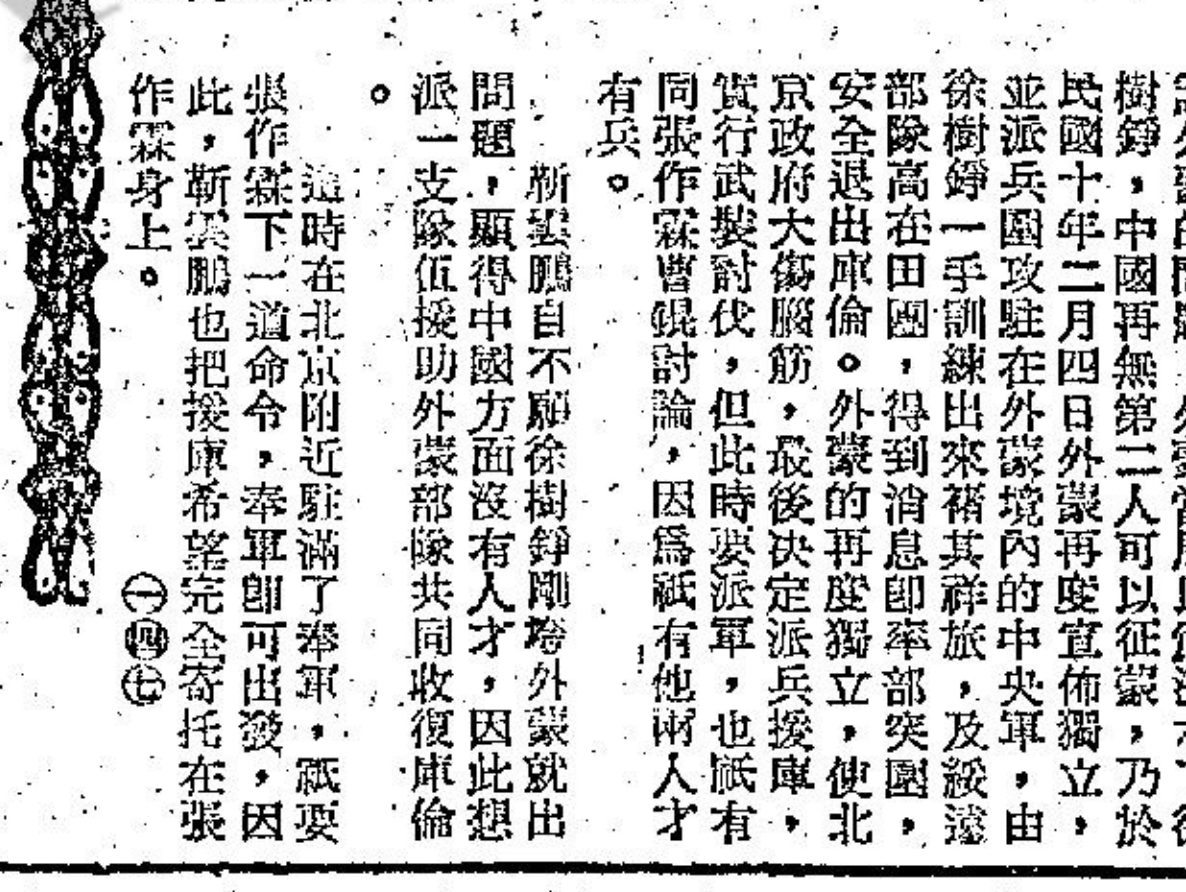 樹錚，中國再無第二人可以征蒙，乃於
民國十年二月四日外蒙再度宣佈獨立，
並派兵圍攻駐在外蒙境內的中央軍，由
徐樹錚一手訓練出來褚其祥旅，及綏遠
部隊高在田團，得到消息卽率部突圍，
安全退出庫倫。外蒙的再度獨立，使北
京政府大傷腦筋，最後決定派兵援庫，
實行武裝討伐，但此時要派軍，也祇有
同張作霖曹錕討論，因爲祇有他兩人才
有兵。
靳雲鵬自不願徐樹錚剛垮外蒙就出
問題，顯得中國方面沒有人才，因此想
派一支隊伍援助外蒙部隊共同收復庫倫
。
這時在北京附近駐滿了奉軍，祇要
張作霖下一道命令，奉軍卽可出發，因
此，靳雲鵬也把援庫希望完全寄托在張
作霖身上。
一四七